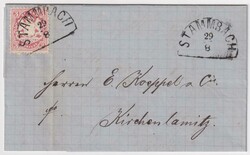 STAMMBACH
29
8
STAMMBACH
29
8
Herren E. Koeppel & Cie.
Kirchenlamitz